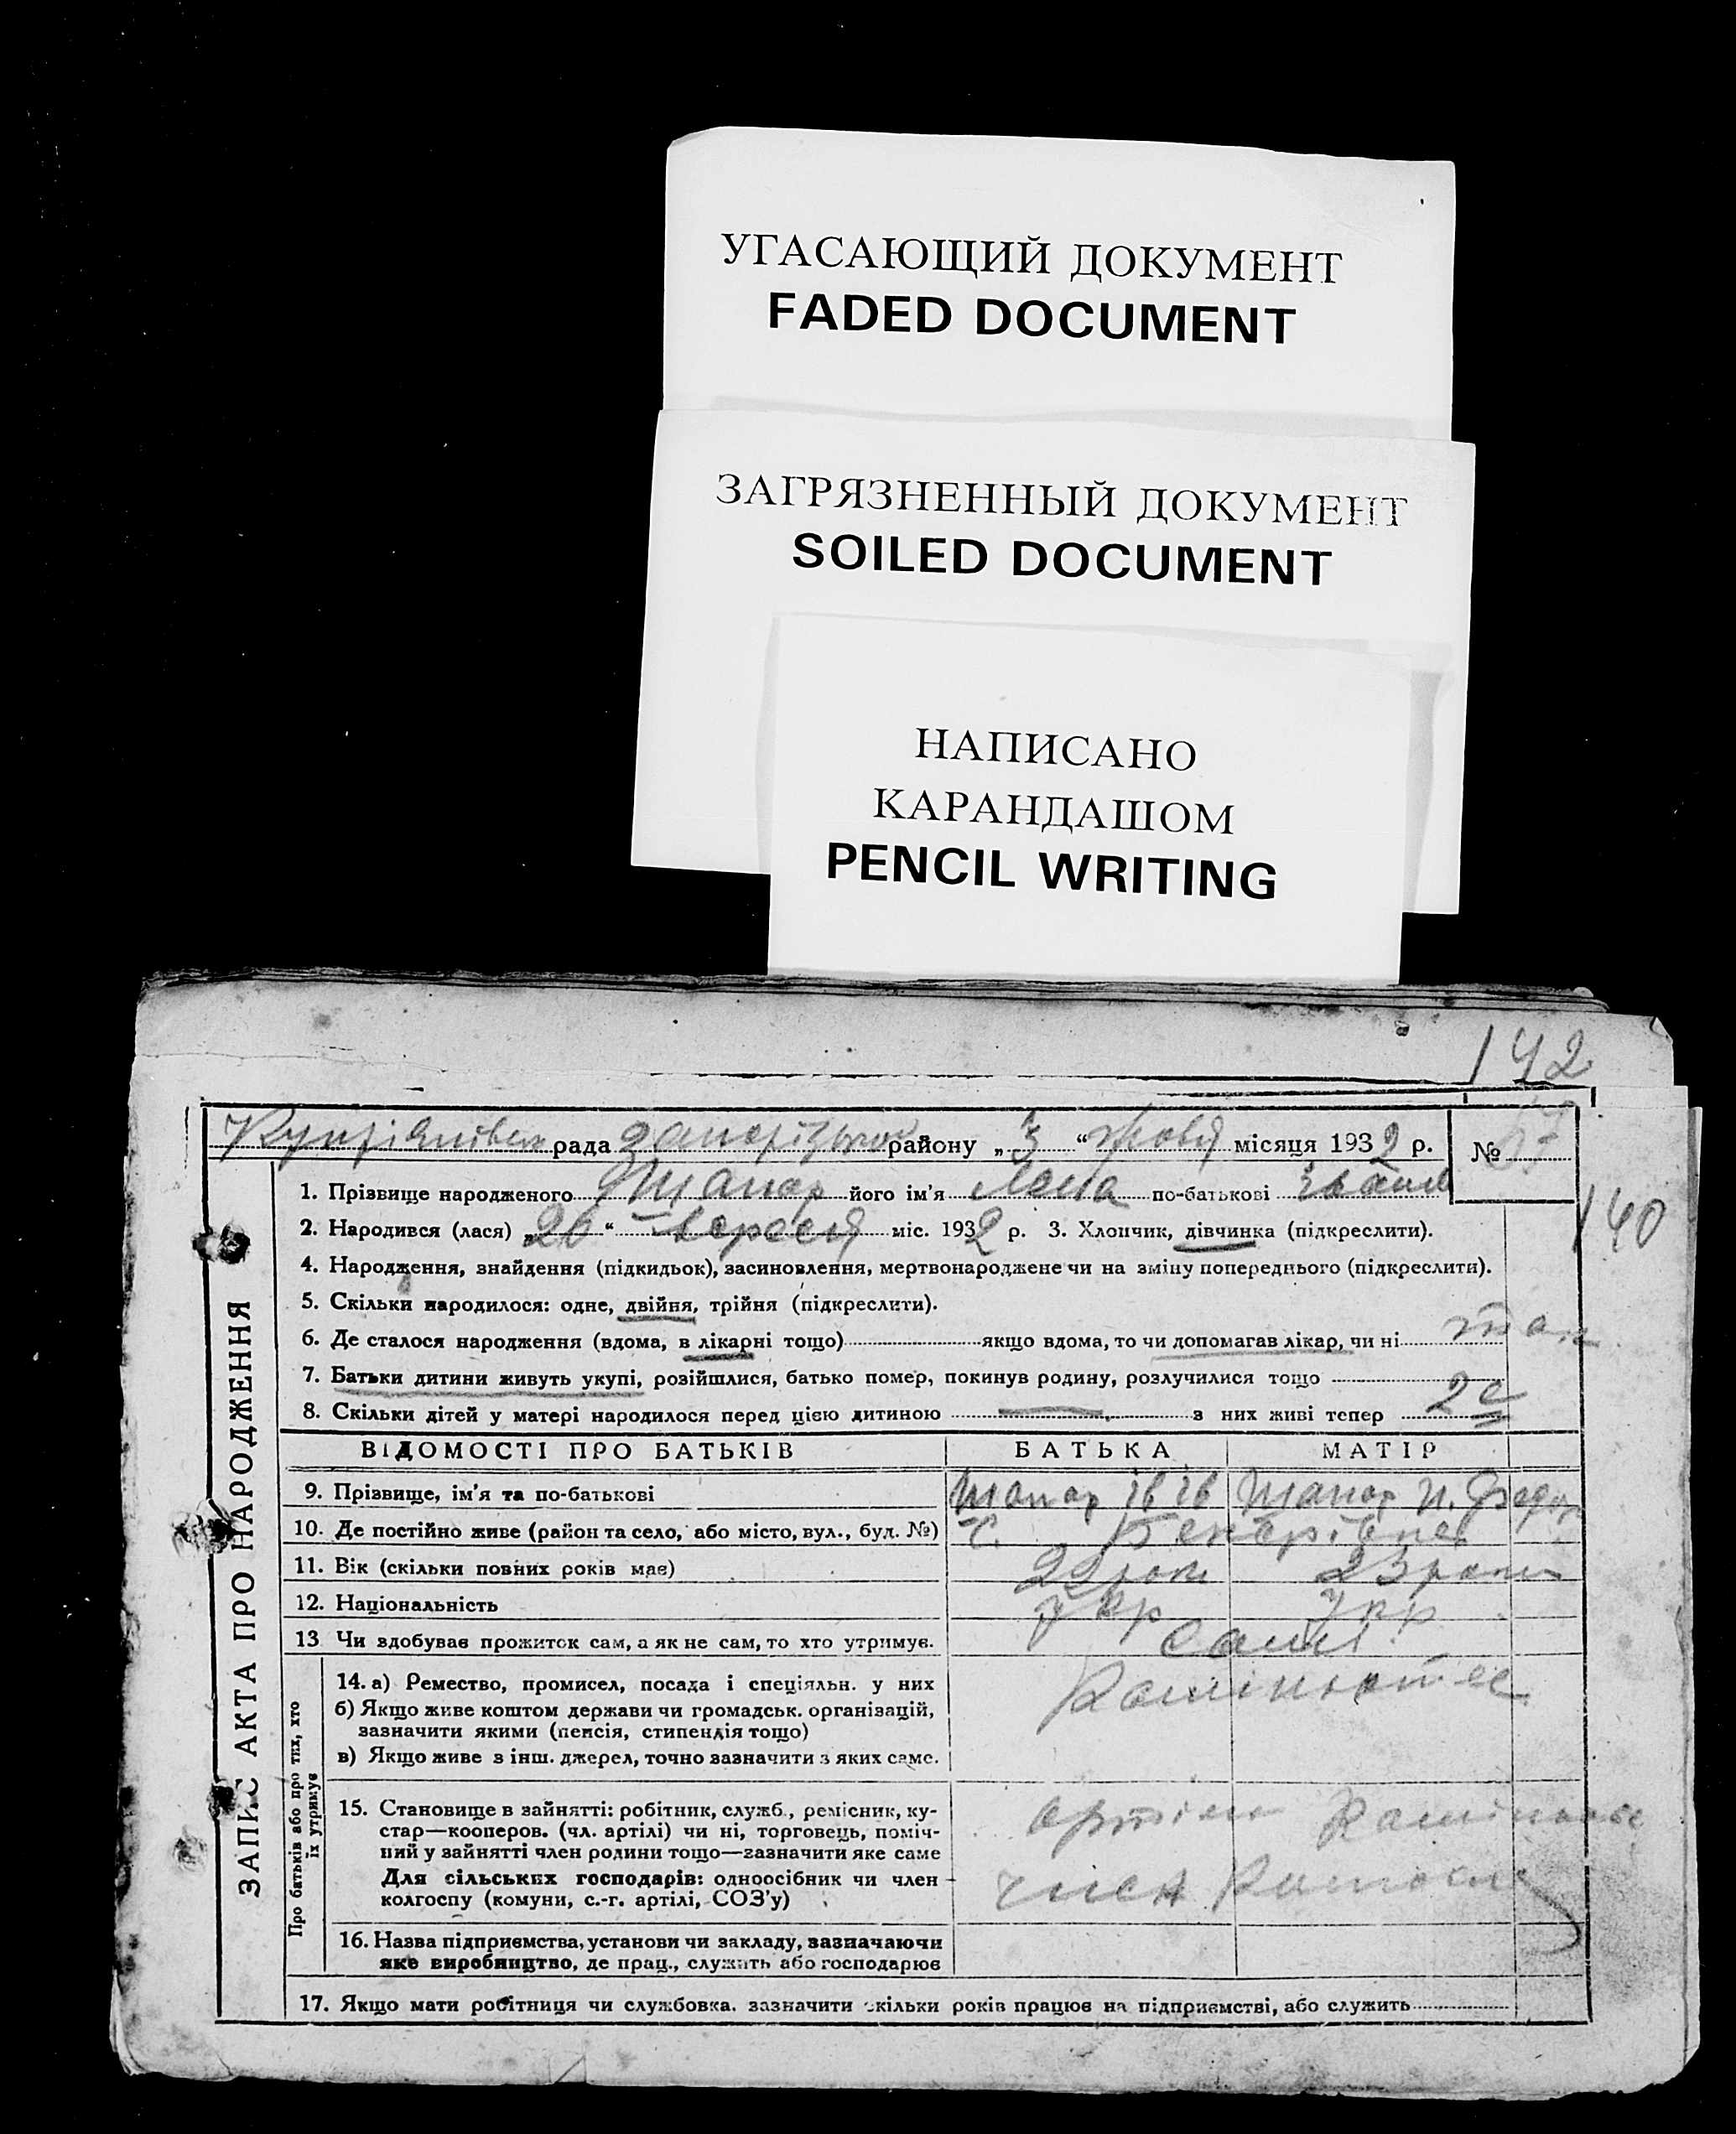 УГАСАЮЩИЙ ДОКУМЕНТ
FADED DOCUMENT
ЗАГРЯЗНЕННЫЙ ДОКУМЕНТ
SOILED DOCUMENT
НАПИСАНО
КАРАНДАШОМ
PENCIL WRITING
142
рада районну „3“ жовтя місяця 1932 р. №
140
ЗАПИС АКТА ПРО НАРОДЖЕННЯ
1. Прізвище народженого Шапар його ім'я Лена по-батькові Іванів
2. Народився (лася) „26“ вересня міс. 1932 р. 3. Хлопчик, дівчинка (підкреслити).
4. Народження, знайдення (підкидьок), засиновлення, мертвонароджене чи на зміну попереднього (підкреслити).
5. Скільки народилося: одне, двійня, трійня (підкреслити).
6. Де сталося народження (вдома, в лікарні тощо) якщо вдома, то чи допомагав лікар, чи ні так
7. Батьки дитини живуть укупі, розійшлися, батько помер, покинув родину, розлучилися тощо
8. Скільки дітей у матері народилося перед цією дитиною з них живі тепер 2
ВІДОМОСТІ ПРО БАТЬКІВ БАТЬКА МАТІР
9. Прізвище, ім'я та по-батькові Шапар Ів Ів Шапар П. Федор
10. Де постійно живе (район та село, або місто, вул., буд. №) С.
11. Вік (скільки повних років має) 22 роки 23 роки
12. Національність Укр Укр
13 Чи здобував прожиток сам, а як не сам, то хто утримує. Самі
Про батьків або про тих, хто їх утримує
14. а) Ремество, промисел, посада і спеціяльн. у них
б) Якщо живе коштом держави чи громадськ. організацій,
зазначити якими (пенсія, стипендія тощо)
в) Якщо живе з інш. джерел, точно зазначити з яких саме.
15. Становище в зайнятті: робітник, служб., ремісник, ку-
стар—кооперов. (чл. артілі) чи ні, торговець, поміч-
ний у зайнятті член родини тощо—зазначити яке саме
Для сільських господарів: одноосібник чи член
колгоспу (комуни, с.-г. артілі, СОЗ'у)
член
16. Назва підприємства, установи чи закладу, зазначаючи
яке виробництво, де прац., служить або господарює
17. Якщо мати робітниця чи службовка. зазначити скільки років працює на підприємстві, або служить